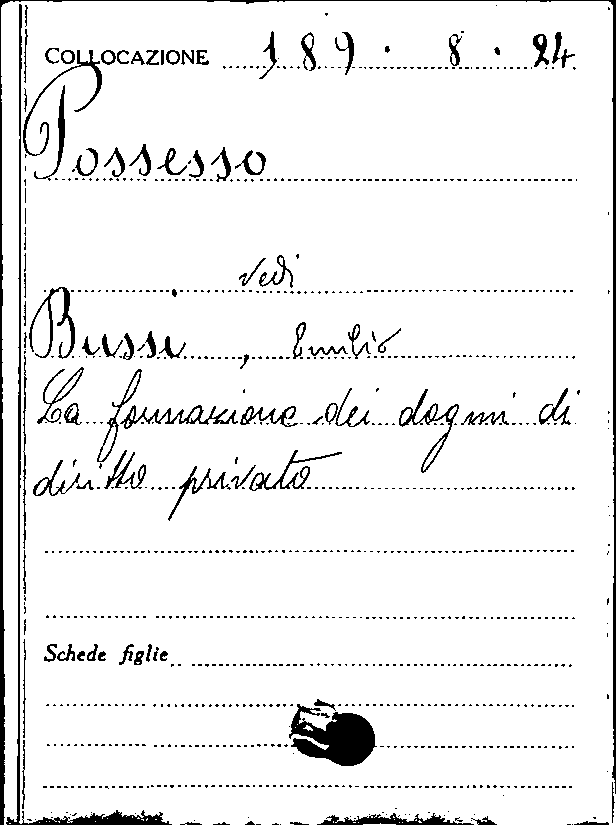 COLLOCAZIONE 189 . 8 . 24
Possesso
vedi
Bussi, Emilio
La formazione dei dogmi di
diritto privato
Schede figlie